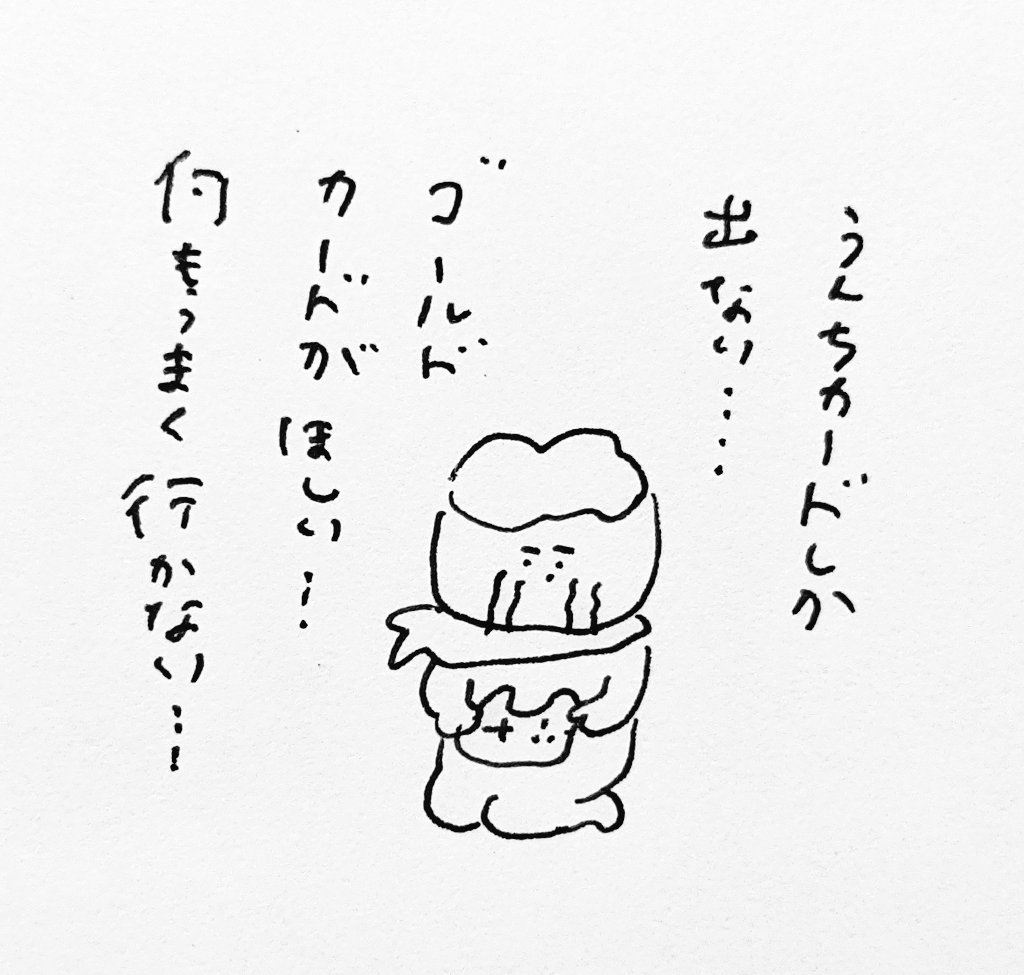 うんちカードしか
出ない‥‥
ゴールド
カードが ほしい…!
何もうまく行かない…!